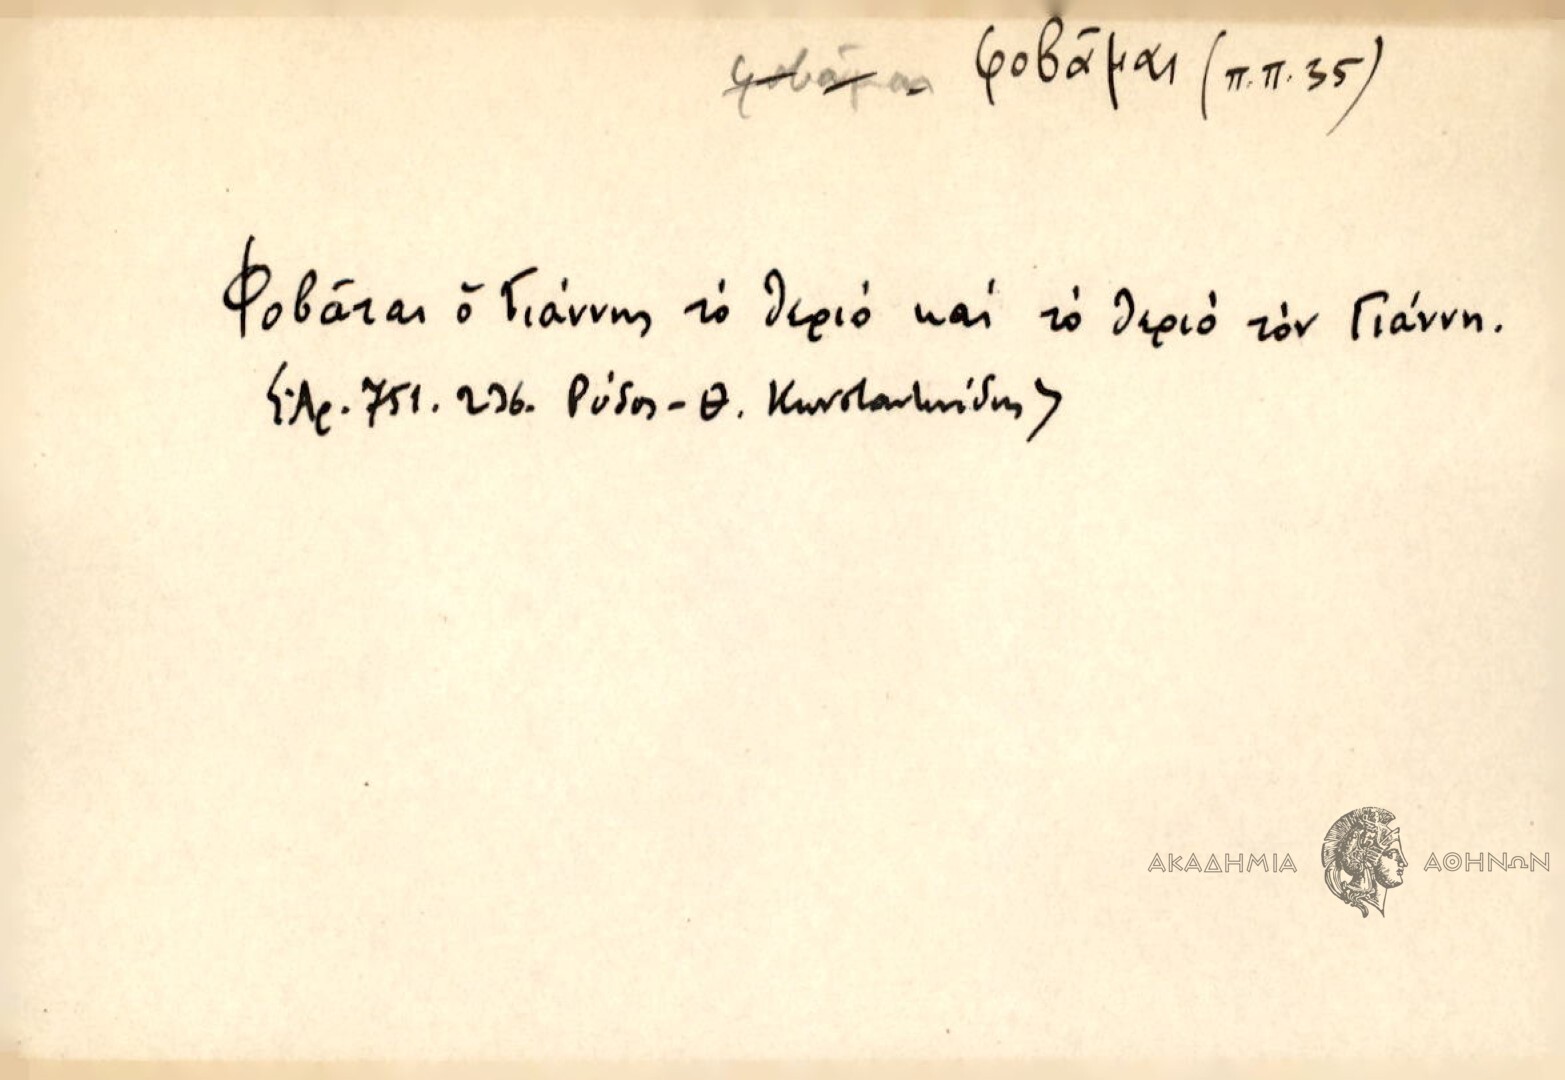 φοβᾶμαι φοβᾶμαι (π.π. 35)
Φοβᾶται ὁ Γιάννης τό θεριό καί τό θεριό τόν Γιάννη.
Ἀρ. 751. 236. Ρόδος - Θ. Κωνσταντινίδης
ΑΚΑΔΗΜΙΑ ΑΘΗΝΩΝ